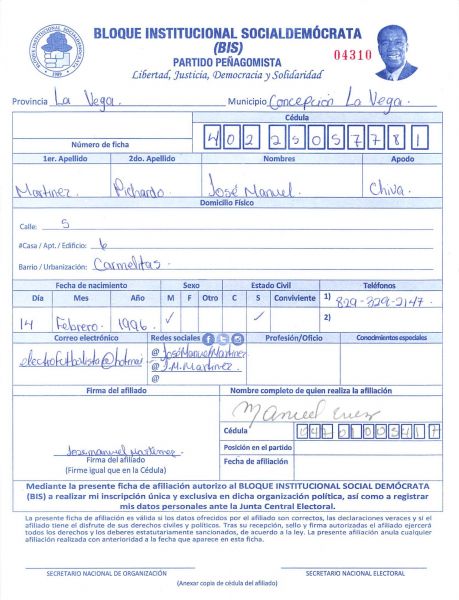 BLOQUE INSTITUCIONAL SOCIALDEMÓCRATA
(BIS)
PARTIDO PEÑAGOMISTA
Libertad, Justicia, Democracia y Solidaridad
04310
Provincia La Vega. Municipio Concepción La Vega.
Cédula
Número de ficha 40225057781
1er. Apellido 2do. Apellido Nombres Apodo
Martinez Pichardo. José Manuel. Chiva.
Domicilio Físico
Calle: 5
#Casa / Apt. / Edificio: 6
Barrio / Urbanización: Carmelitas.
Fecha de nacimiento Sexo Estado Civil Teléfonos
Día Mes Año M F Otro C S Conviviente 1) 829-329-2147.
14 Febrero. 1996. ✓ ✓ 2)
Correo electrónico Redes sociales Profesión/Oficio Conocimientos especiales
electrofutbolista@hotmai @JoséManuelMartinez
@J.M.Martinez.
@
Firma del afiliado Nombre completo de quien realiza la afiliación
Manuel
Cédula
Josemanuel Martinez Posición en el partido
Firma del afiliado
(Firme igual que en la Cédula) Fecha de afiliación
Mediante la presente ficha de afiliación autorizo al BLOQUE INSTITUCIONAL SOCIAL DEMÓCRATA
(BIS) a realizar mi inscripción única y exclusiva en dicha organización política, así como a registrar
mis datos personales ante la Junta Central Electoral.
La presente ficha de afiliación es válida si los datos ofrecidos por el afiliado son correctos, las declaraciones veraces y si el
afiliado tiene el disfrute de sus derechos civiles y políticos. Tras su recepción, sello y firma autorizadas el afiliado ejercerá
todos los derechos y los deberes estatutariamente sancionados, de acuerdo a la ley. La presente afiliación anula cualquier
afiliación realizada con anterioridad a la fecha que aparece en esta ficha.
SECRETARIO NACIONAL DE ORGANIZACIÓN SECRETARIO NACIONAL ELECTORAL
(Anexar copia de cédula del afiliado)